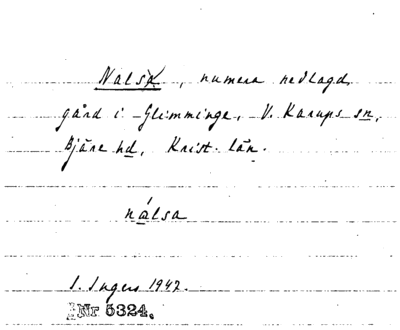 Nalsa, numera nedlagd
gård i Glimminge, V. Karups sn,
Bjäre hd, Krist. län.
nálsa
I. Ingers 1942.
Nr 5324.